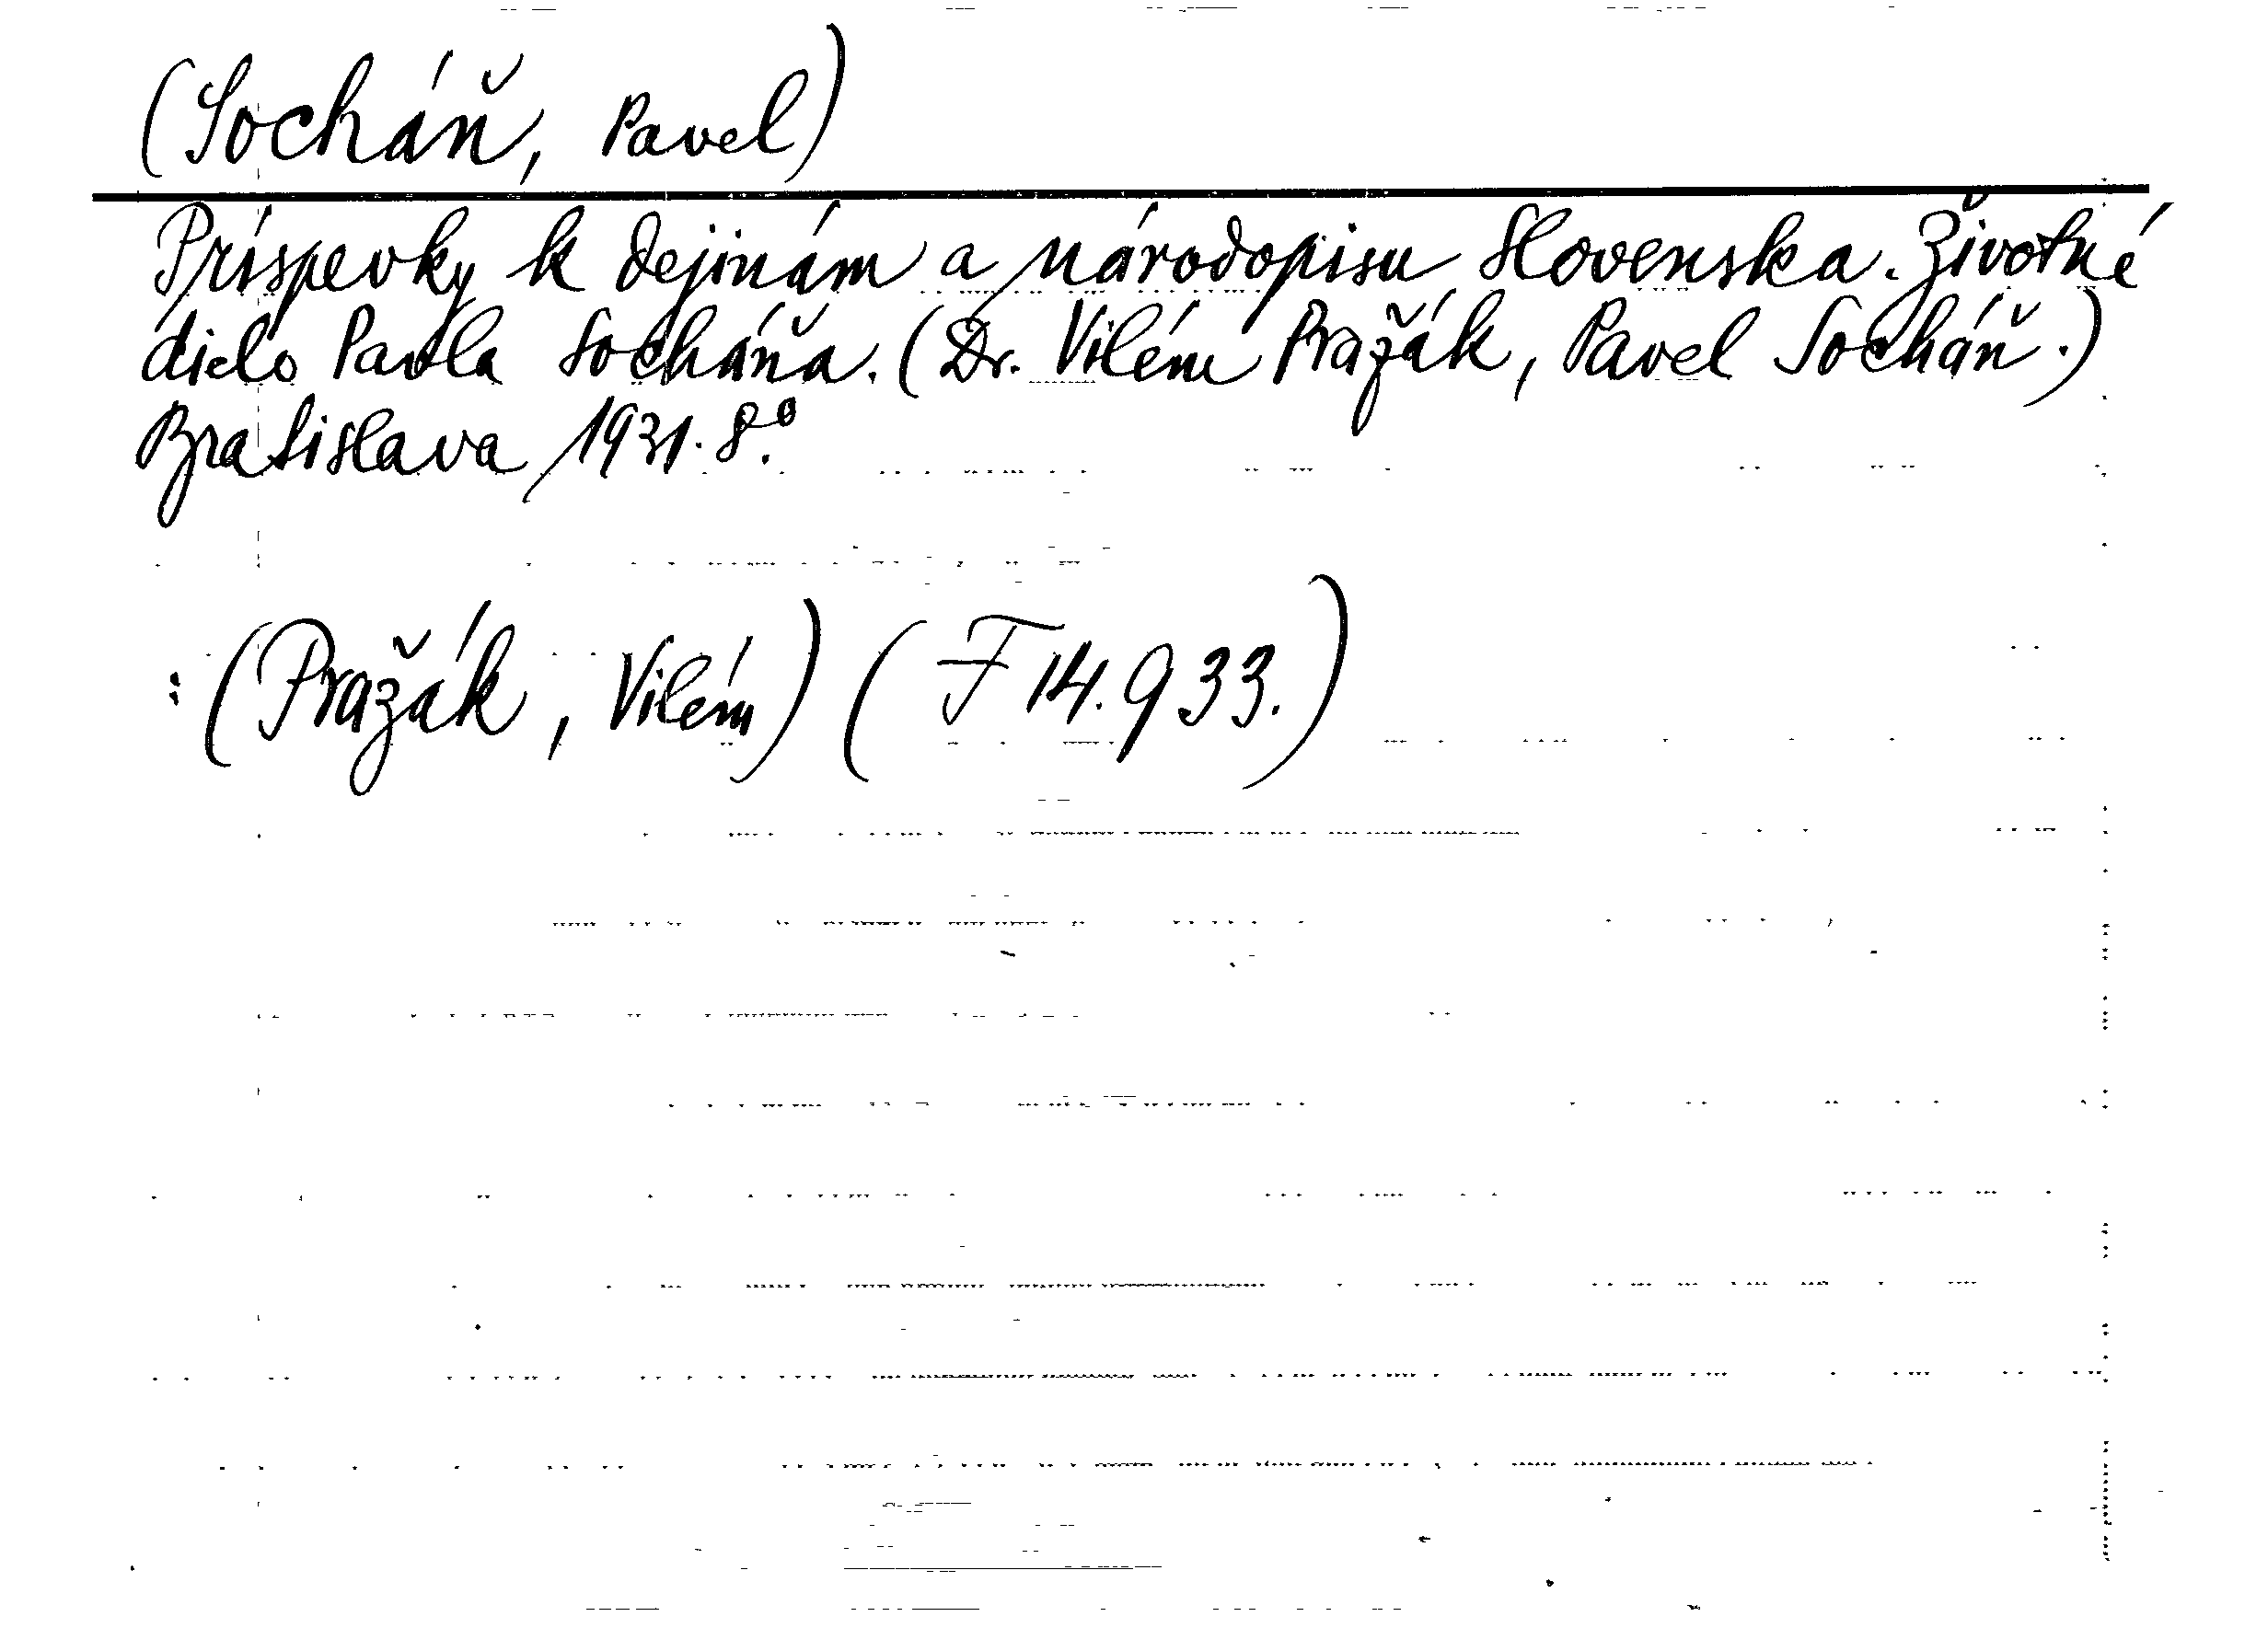 (Socháň, Pavel)
Príspevky k dejinám a národopisu Slovenska. Životné
dielo Pavla Socháňa. (Dr. Vilém Pražák, Pavel Socháň.)
Bratislava 1931. 8.°
: (Pražák, Vilém) (F 14.933.)